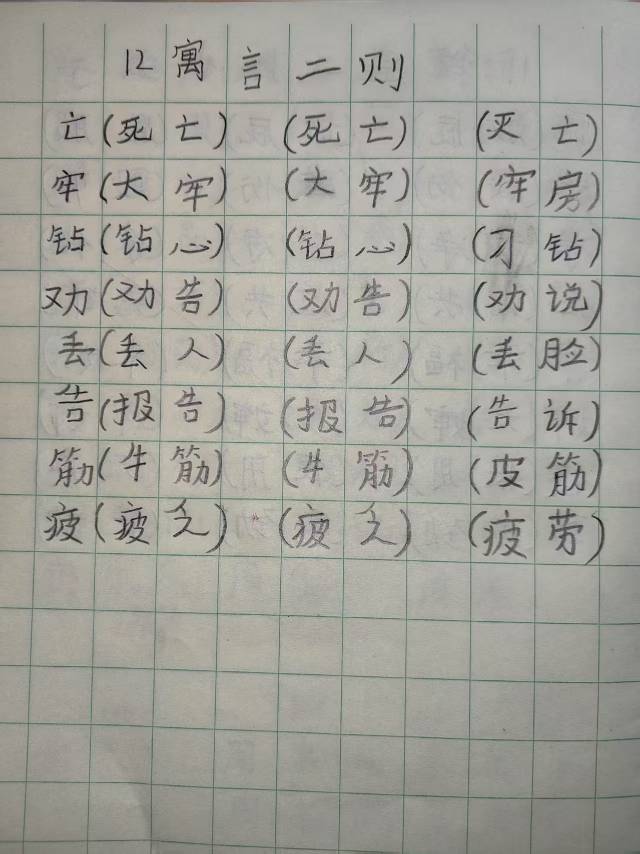 12 寓言二则
亡(死亡) (死亡) (灭亡)
牢(大牢) (大牢) (牢房)
钻(钻心) (钻心) (刁钻)
劝(劝告) (劝告) (劝说)
丢(丢人) (丢人) (丢脸)
告(报告) (报告) (告诉)
筋(牛筋) (牛筋) (皮筋)
疲(疲乏) (疲乏) (疲劳)